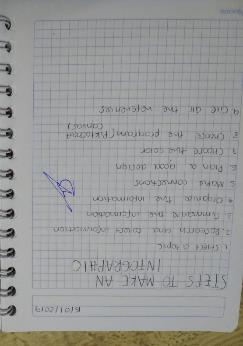 15/01/2019
STEPS TO MAKE AN
INFOGRAPHIC
1. Select a topic
2. Research and collect information
3. Summarize the information
4. Organize the information
5. Make connections
6. Plan a good design
7. Create the color
8. Create the programs (Piktochart
Canvas)
9. Cite all the references